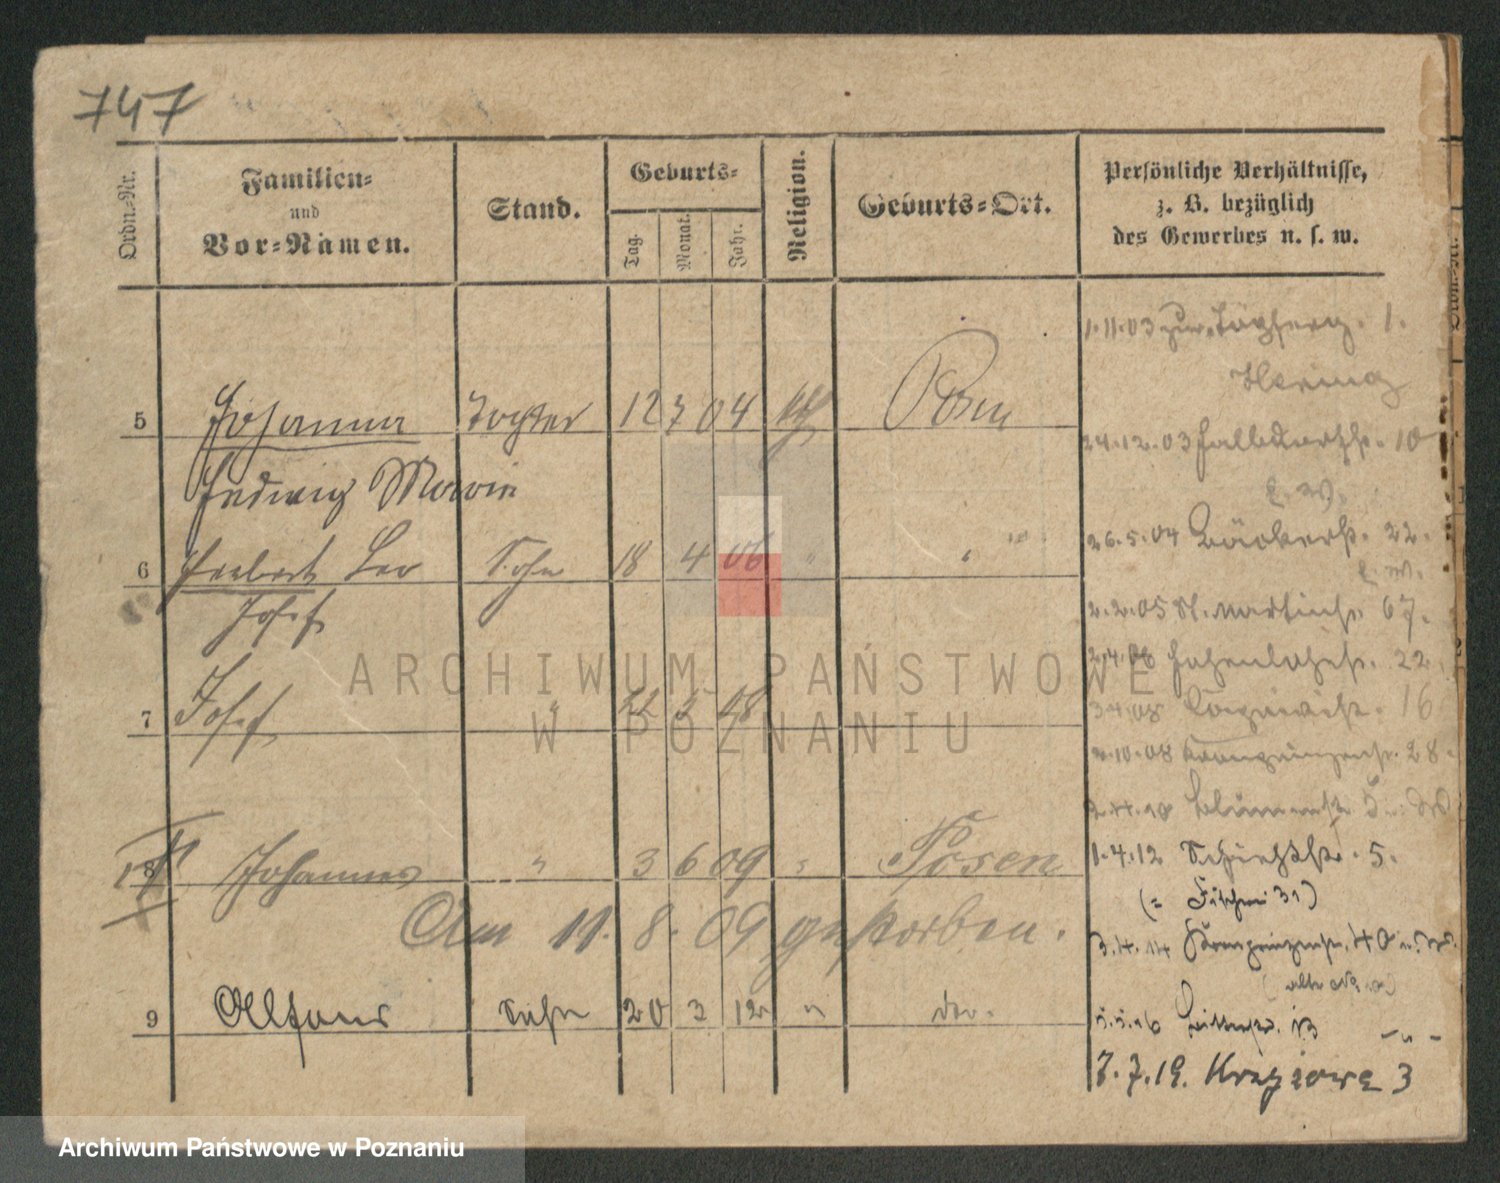 747
Ordn.-Nr.
Familien-
und
Vor-Namen.
Stand.
Geburts-
Tag.
Monat.
Jahr.
Religion.
Geburts-Ort.
Persönliche Verhältnisse,
z. B. bezüglich
des Gewerbes u. s. w.
1.11.03 1.
5 Johanna Tochter 12 7 04 kath Posen
24.12.03 10
Hedwig Maria
26.5.04 Bäckerstr. 22.
6 Herbert Leo Sohn 18 4 06 " " "
Josef
2.2.05 St. Martinstr. 67.
2.4.06 Hohenlohestr. 22.
7 Josef " 22 3 08
3.4.08 16
2.10.08 Kronprinzenstr. 28.
2.4.10 Blumenstr. 5
8 Johannes " 3 6 09 " Posen
1.4.12 5.
Am 11. 8. 09 gestorben.
(= 31)
3.4.14 Kronprinzenstr. 40
9 Alfons Sohn 20 3 12 " do.
5.5.16 13 - " -
7.7.19. Krzyżowa 3
ARCHIWUM PAŃSTWOWE
W POZNANIU
Archiwum Państwowe w Poznaniu